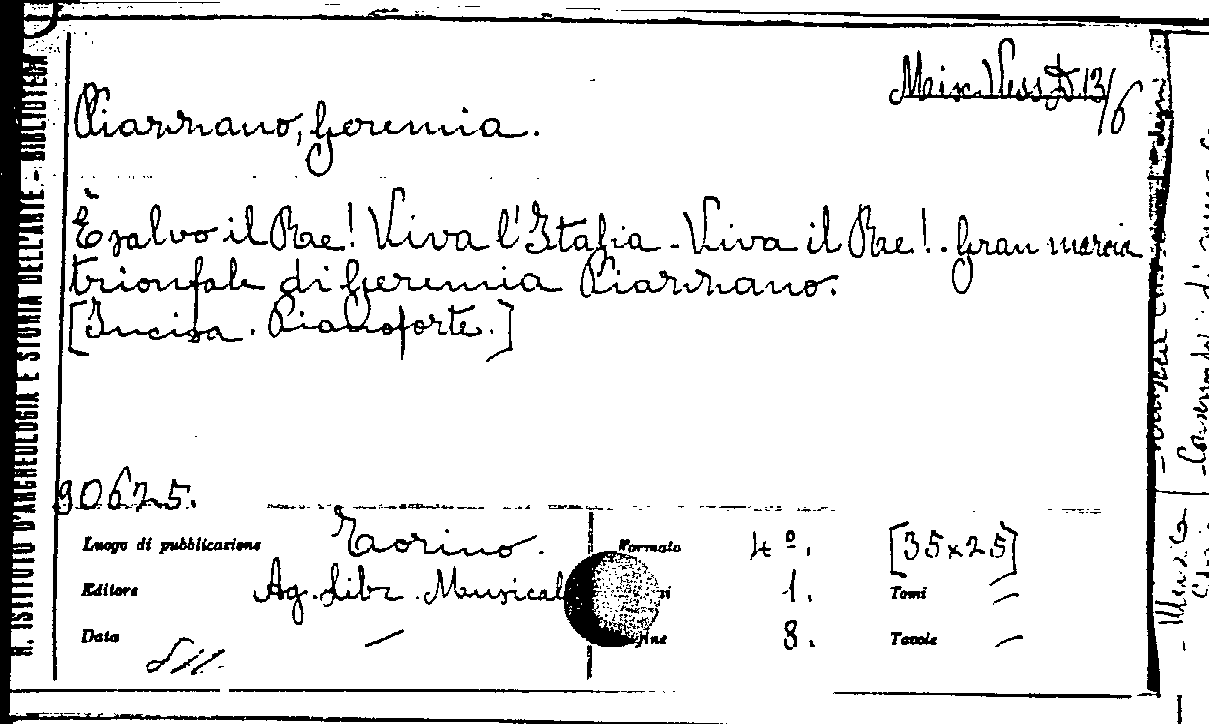 R. ISTITUTO D'ARCHEOLOGIA E STORIA DELL'ARTE - BIBLIOTECA
Misc. Vess. D 13/6
Piazzano, Geremia.
È salvo il Re! Viva l'Italia - Viva il Re! - Gran marcia
trionfale di Geremia Piazzano.
[Incisa. Pianoforte.]
90625.
Luogo di pubblicazione Torino. Formato 4º. [35x25]
Editore Ag. Libr. Musicale 1. Tomi —
Data — 8. Tavole —